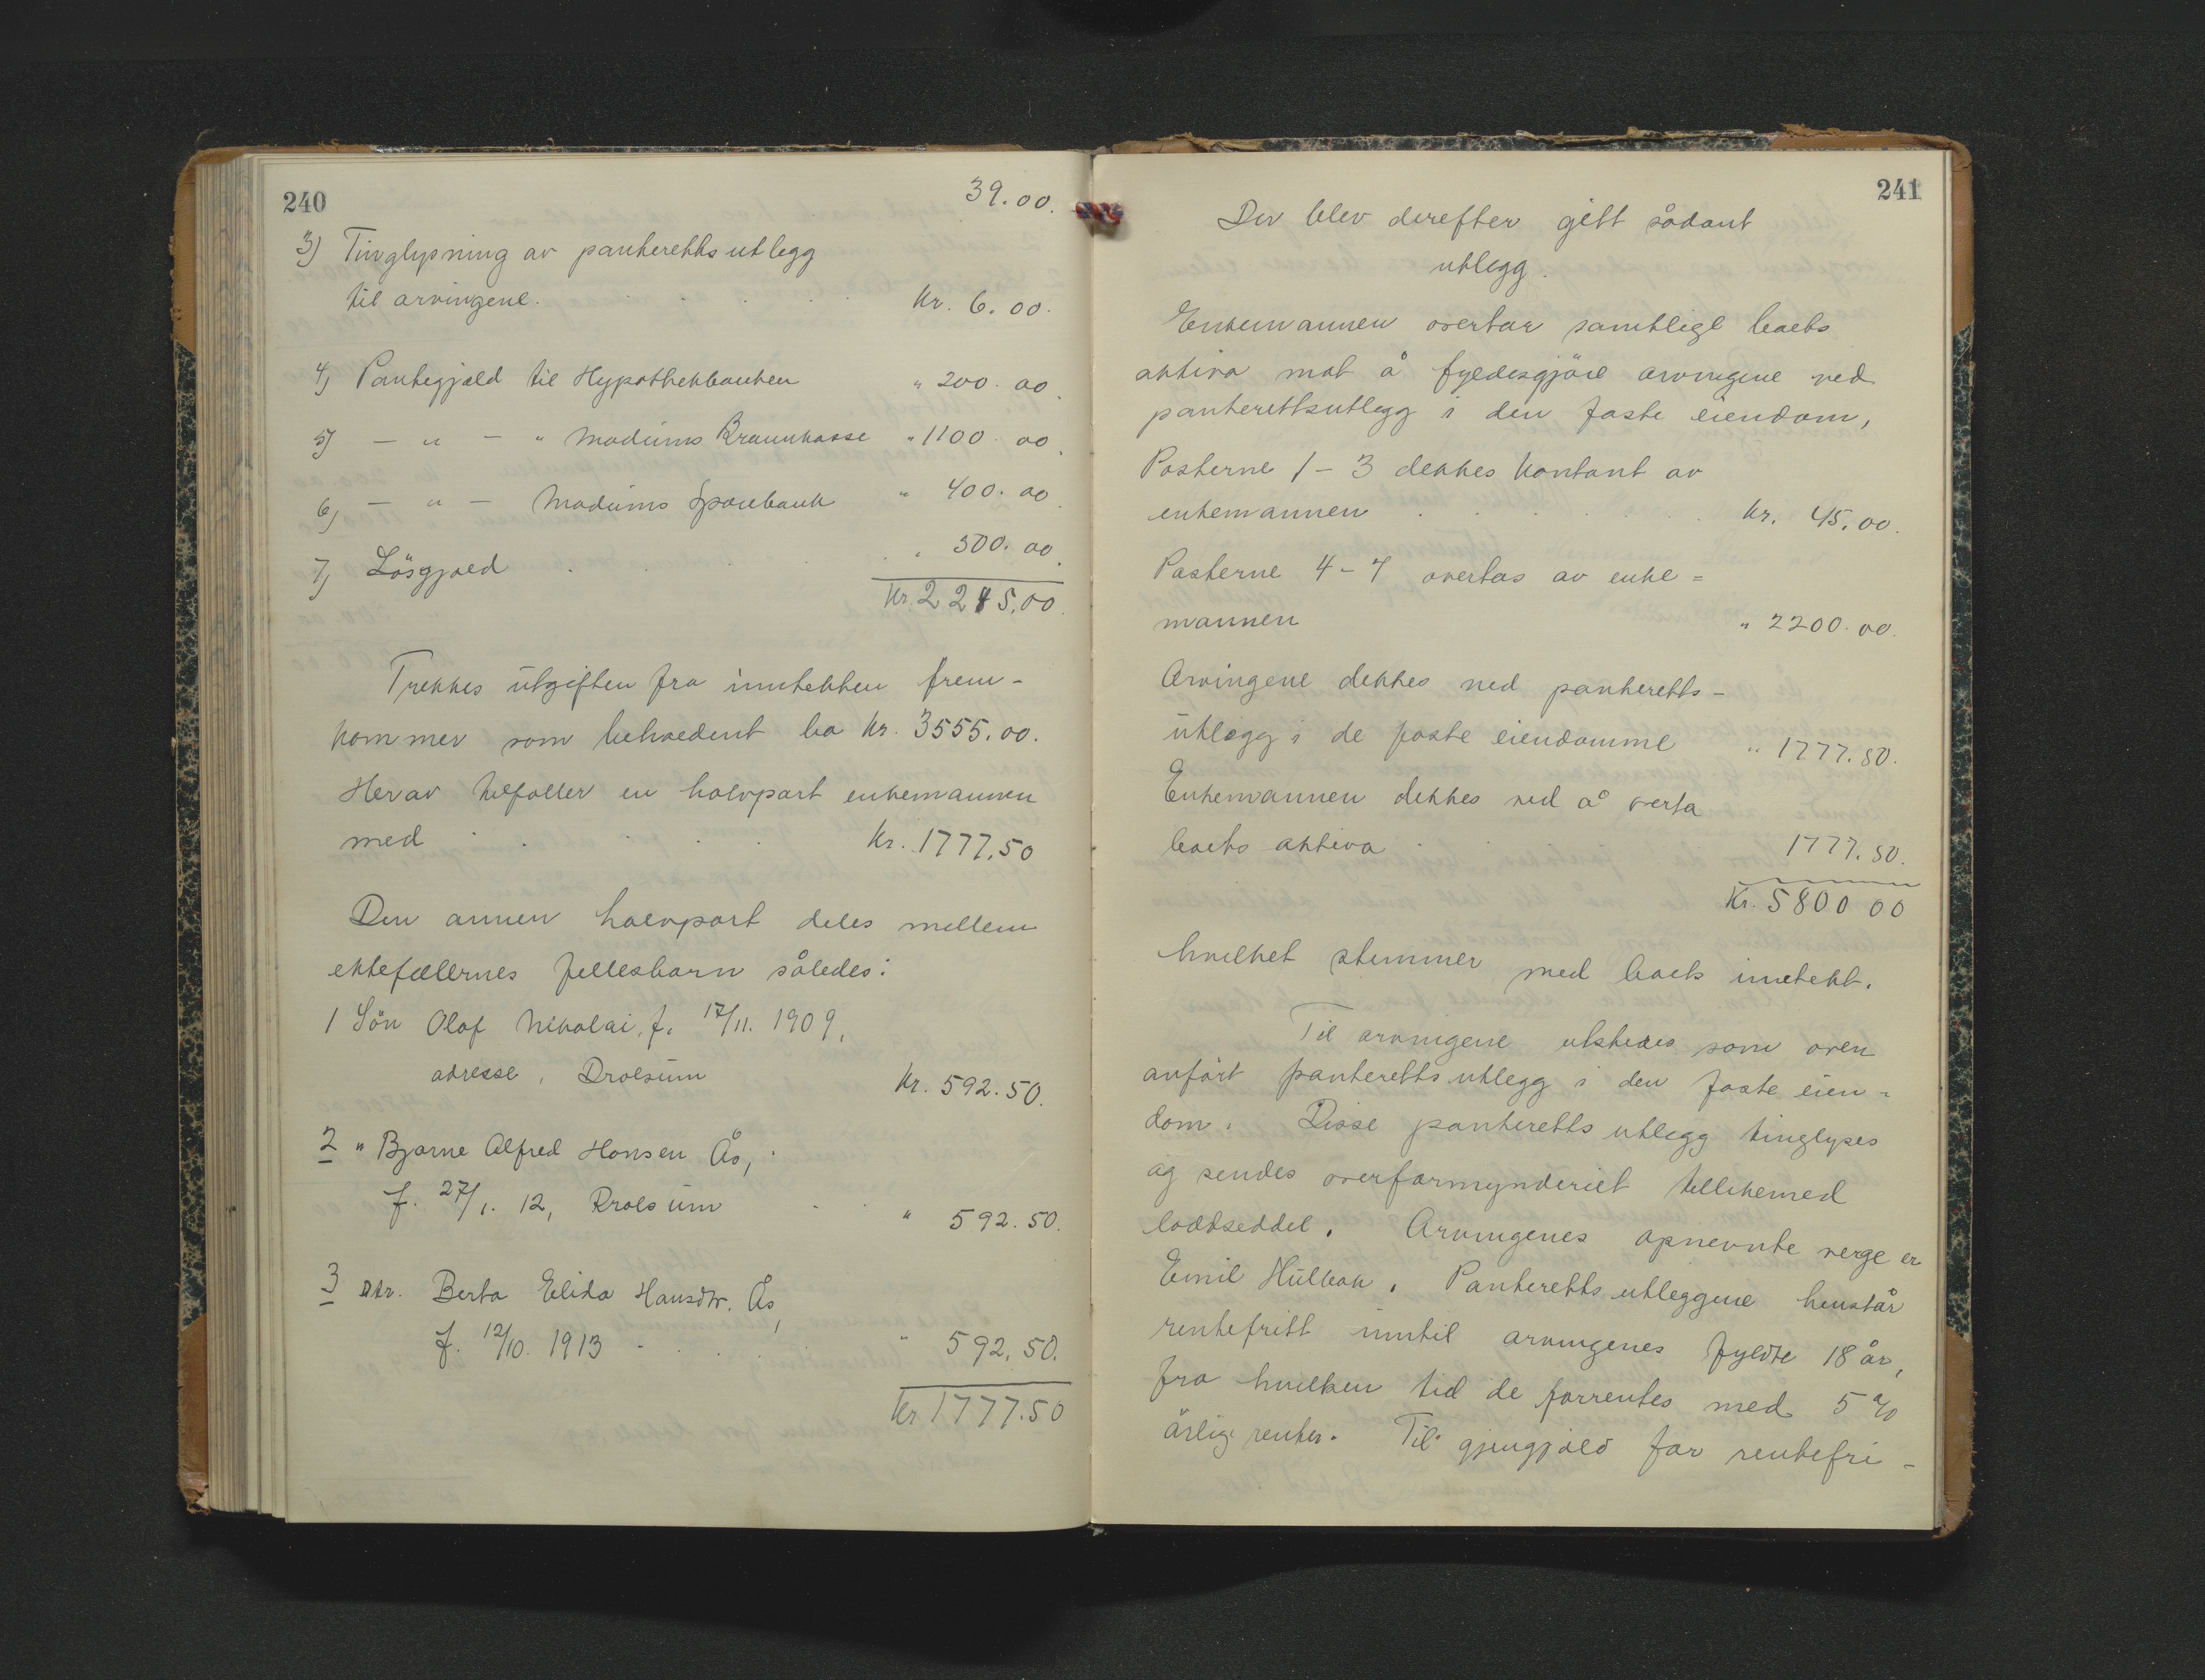 240
39.00.
3) Tinglysning av panterettsutlegg
til arvingene. . . . . kr. 6.00.
4) Pantegjæld til Hypothekbanken " 200.00.
5) – " – " Modums Brannkasse " 1100.00.
6) – " – Modums Sparebank " 400.00
7) Lösgjæld . . . . " 500.00.
Kr. 2245.00.
Trekkes utgiften fra inntekten frem-
kommer som beholdent bo kr. 3555.00.
Herav tilfaller en halvpart enkemannen
med . . . . kr. 1777.50
Den annen halvpart deles mellem
ektefællernes fellesbarn således:
1 Sön Olaf Nikolai, f. 17/11. 1909,
adresse, Drolsum kr. 592.50.
2 " Bjarne Alfred Hansen Ås,
f. 27/1. 12, Drolsum . . " 592.50.
3 dtr. Berta Elida Hansdtr. Ås,
f. 12/10. 1913 . . . . " 592.50.
Kr 1777.50
241
Der blev derefter gitt sådant
utlegg.
Enkemannen overtar samtlige boets
aktiva mot å fyldesgjöre arvingene ved
panterettsutlegg i den faste eiendom,
Posterne 1 – 3 dekkes kontant av
enkemannen . . . . . . kr. 45.00.
Posterne 4 – 7 overtas av enke=
mannen " 2200.00.
Arvingene dekkes ved panteretts-
utlegg i de faste eiendomme " 1777.50.
Enkemannen dekkes ved å overta
boets aktiva . . 1777.50.
Kr. 5800 00
hvilket stemmer med boets inntekt.
Til arvingene utstedes som oven
anfört panterettsutlegg i den faste eien-
dom. Disse panteretts utlegg tinglyses
og sendes overformynderiet tillikemed
loddseddel. Arvingenes opnevnte verge er
Emil Hulbak. Panteretts utleggene henstår
rentefritt inntil arvingenes fyldte 18 år,
fra hvilken tid de forrentes med 5 %
årlig renter. Til gjengjæld for rentefri-